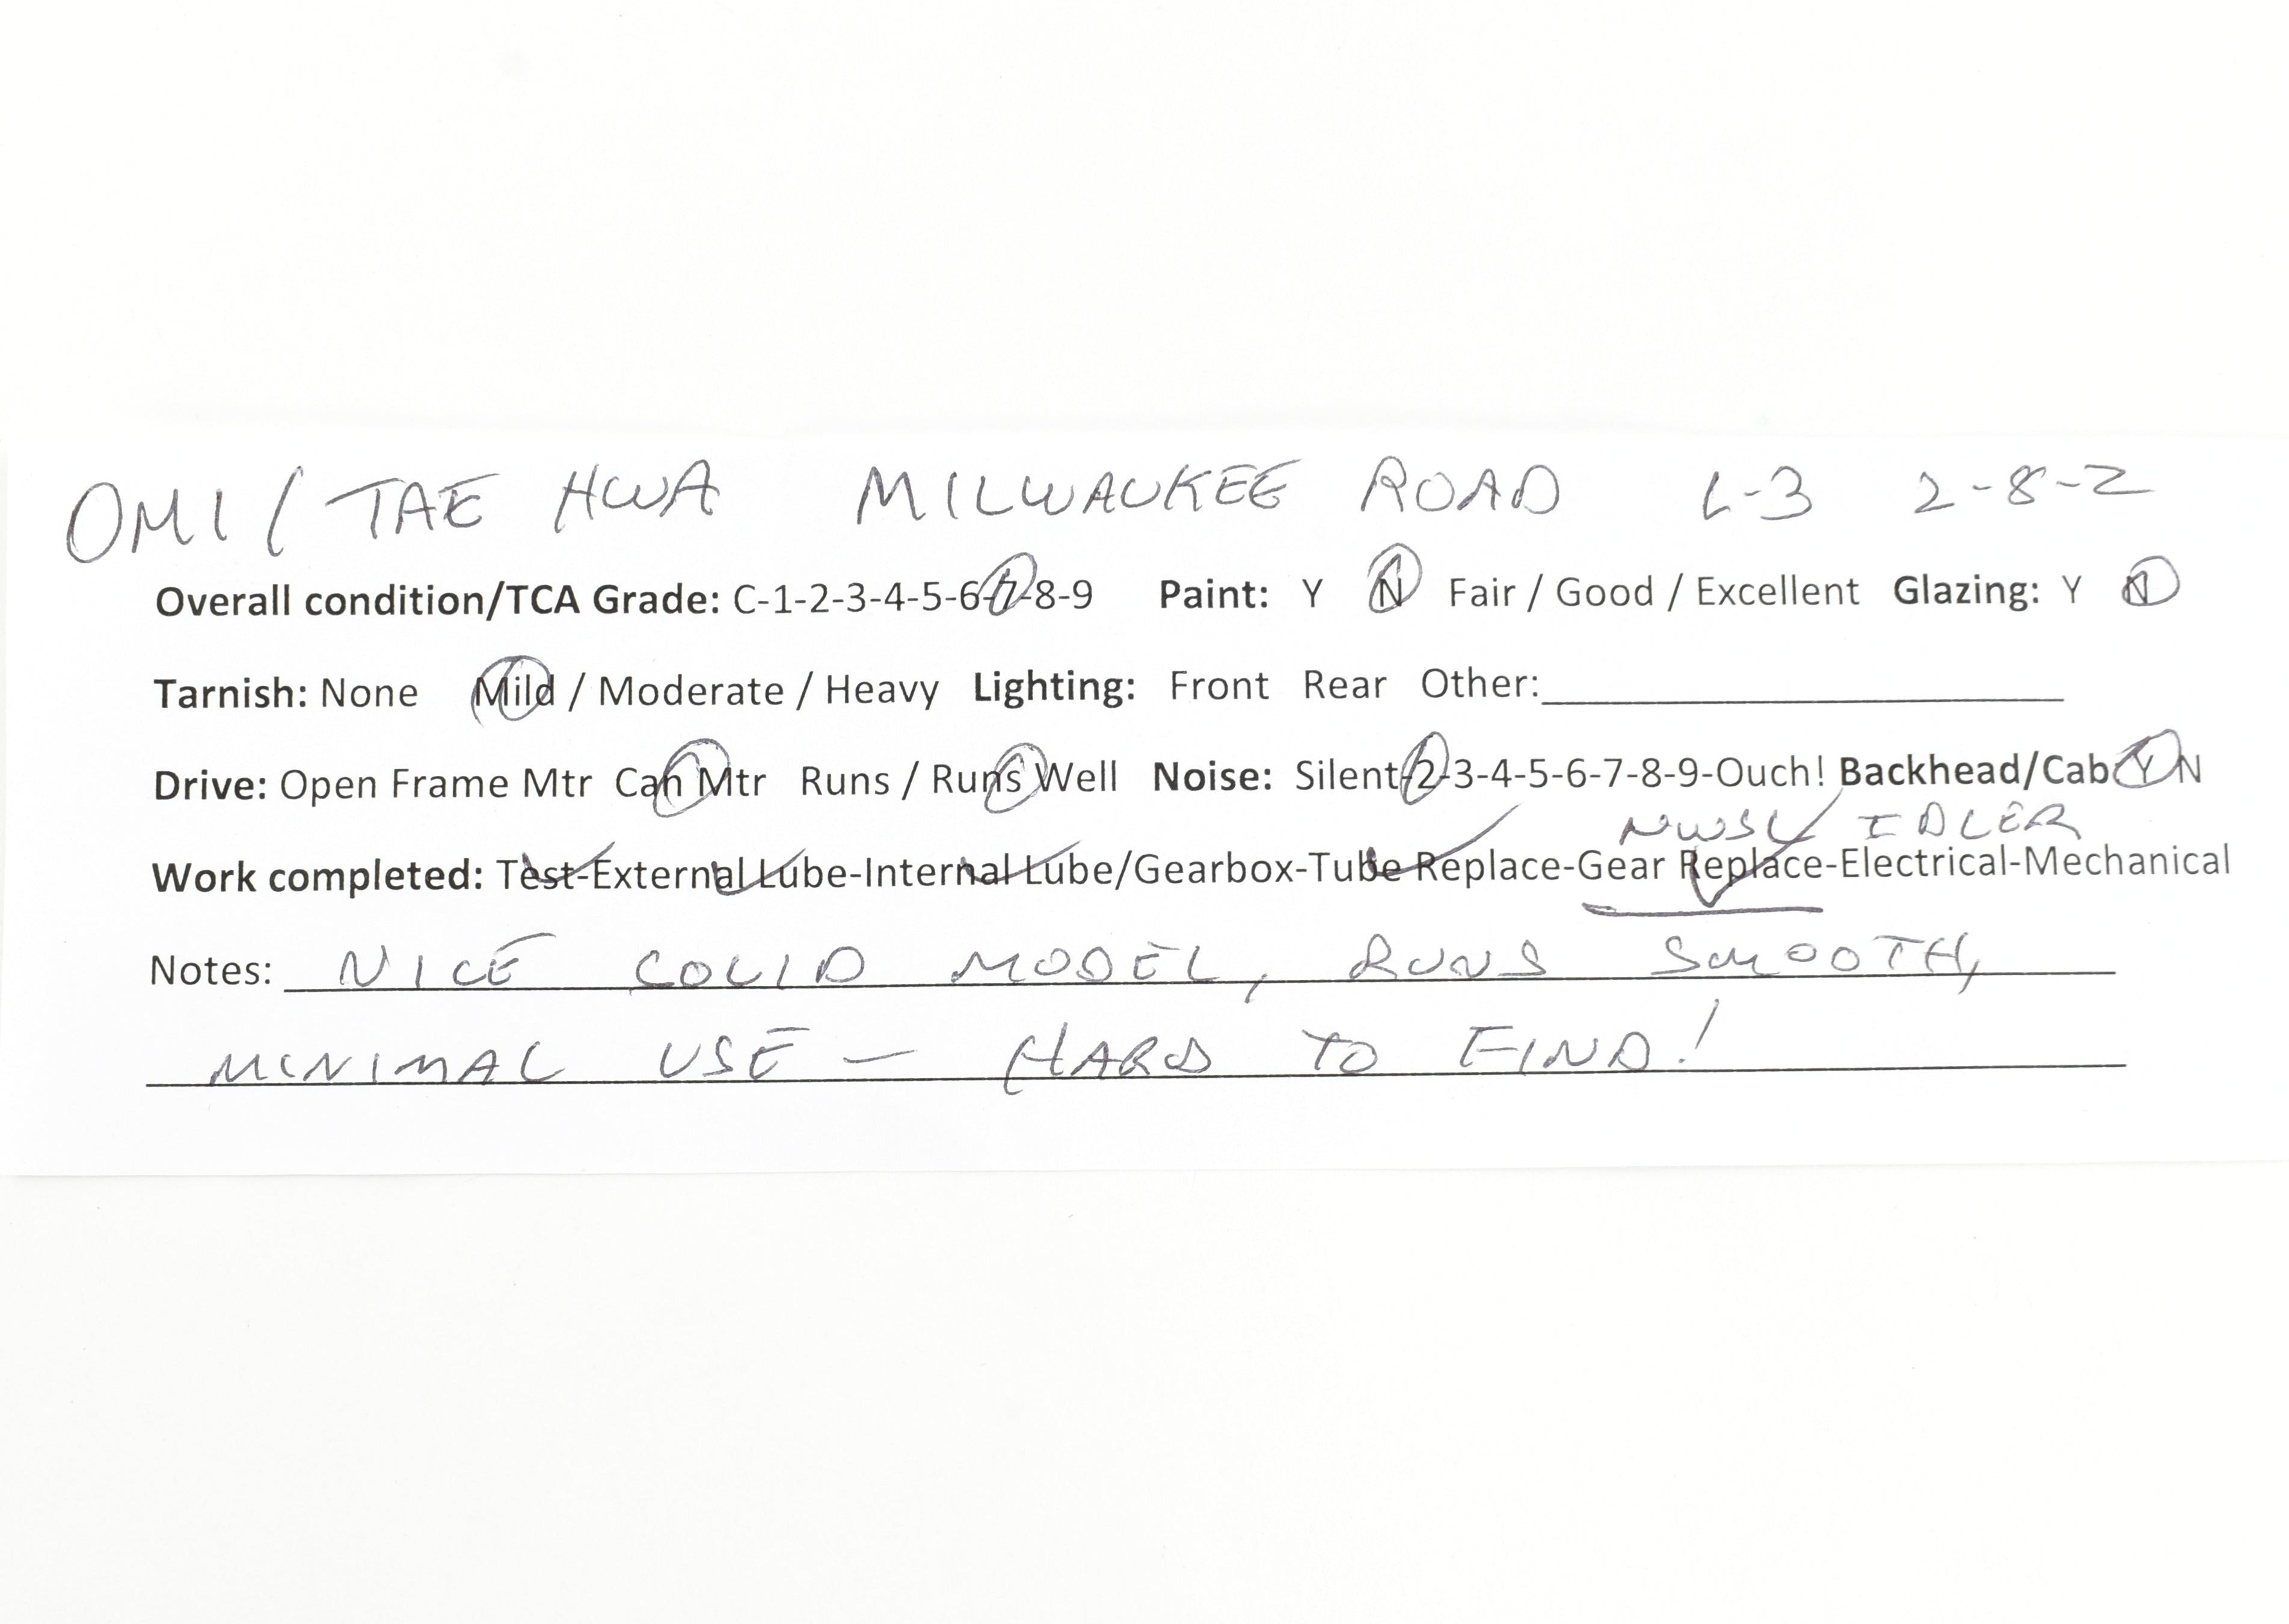 OMI / TAE HWA MILWAUKEE ROAD L-3 2-8-2
Overall condition/TCA Grade: C-1-2-3-4-5-6-7-8-9 Paint: Y N Fair / Good / Excellent Glazing: Y N
Tarnish: None Mild / Moderate / Heavy Lighting: Front Rear Other:
Drive: Open Frame Mtr Can Mtr Runs / Runs Well Noise: Silent-2-3-4-5-6-7-8-9-Ouch! Backhead/Cab Y N
NWSL IDLER
Work completed: Test-External Lube-Internal Lube/Gearbox-Tube Replace-Gear Replace-Electrical-Mechanical
Notes: NICE COLID MODEL, RUNS SMOOTH,
MINIMAL USE — HARD TO FIND!